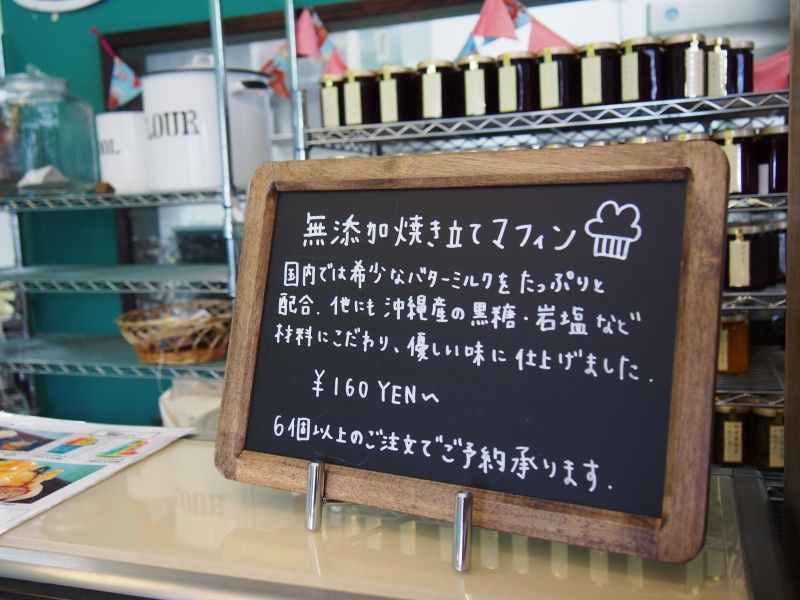 無添加焼き立てマフィン
国内では希少なバターミルクをたっぷりと
配合.他にも沖縄産の黒糖・岩塩など
材料にこだわり、優しい味に仕上げました.
¥160YEN〜
6個以上のご注文でご予約承ります.
LOUR